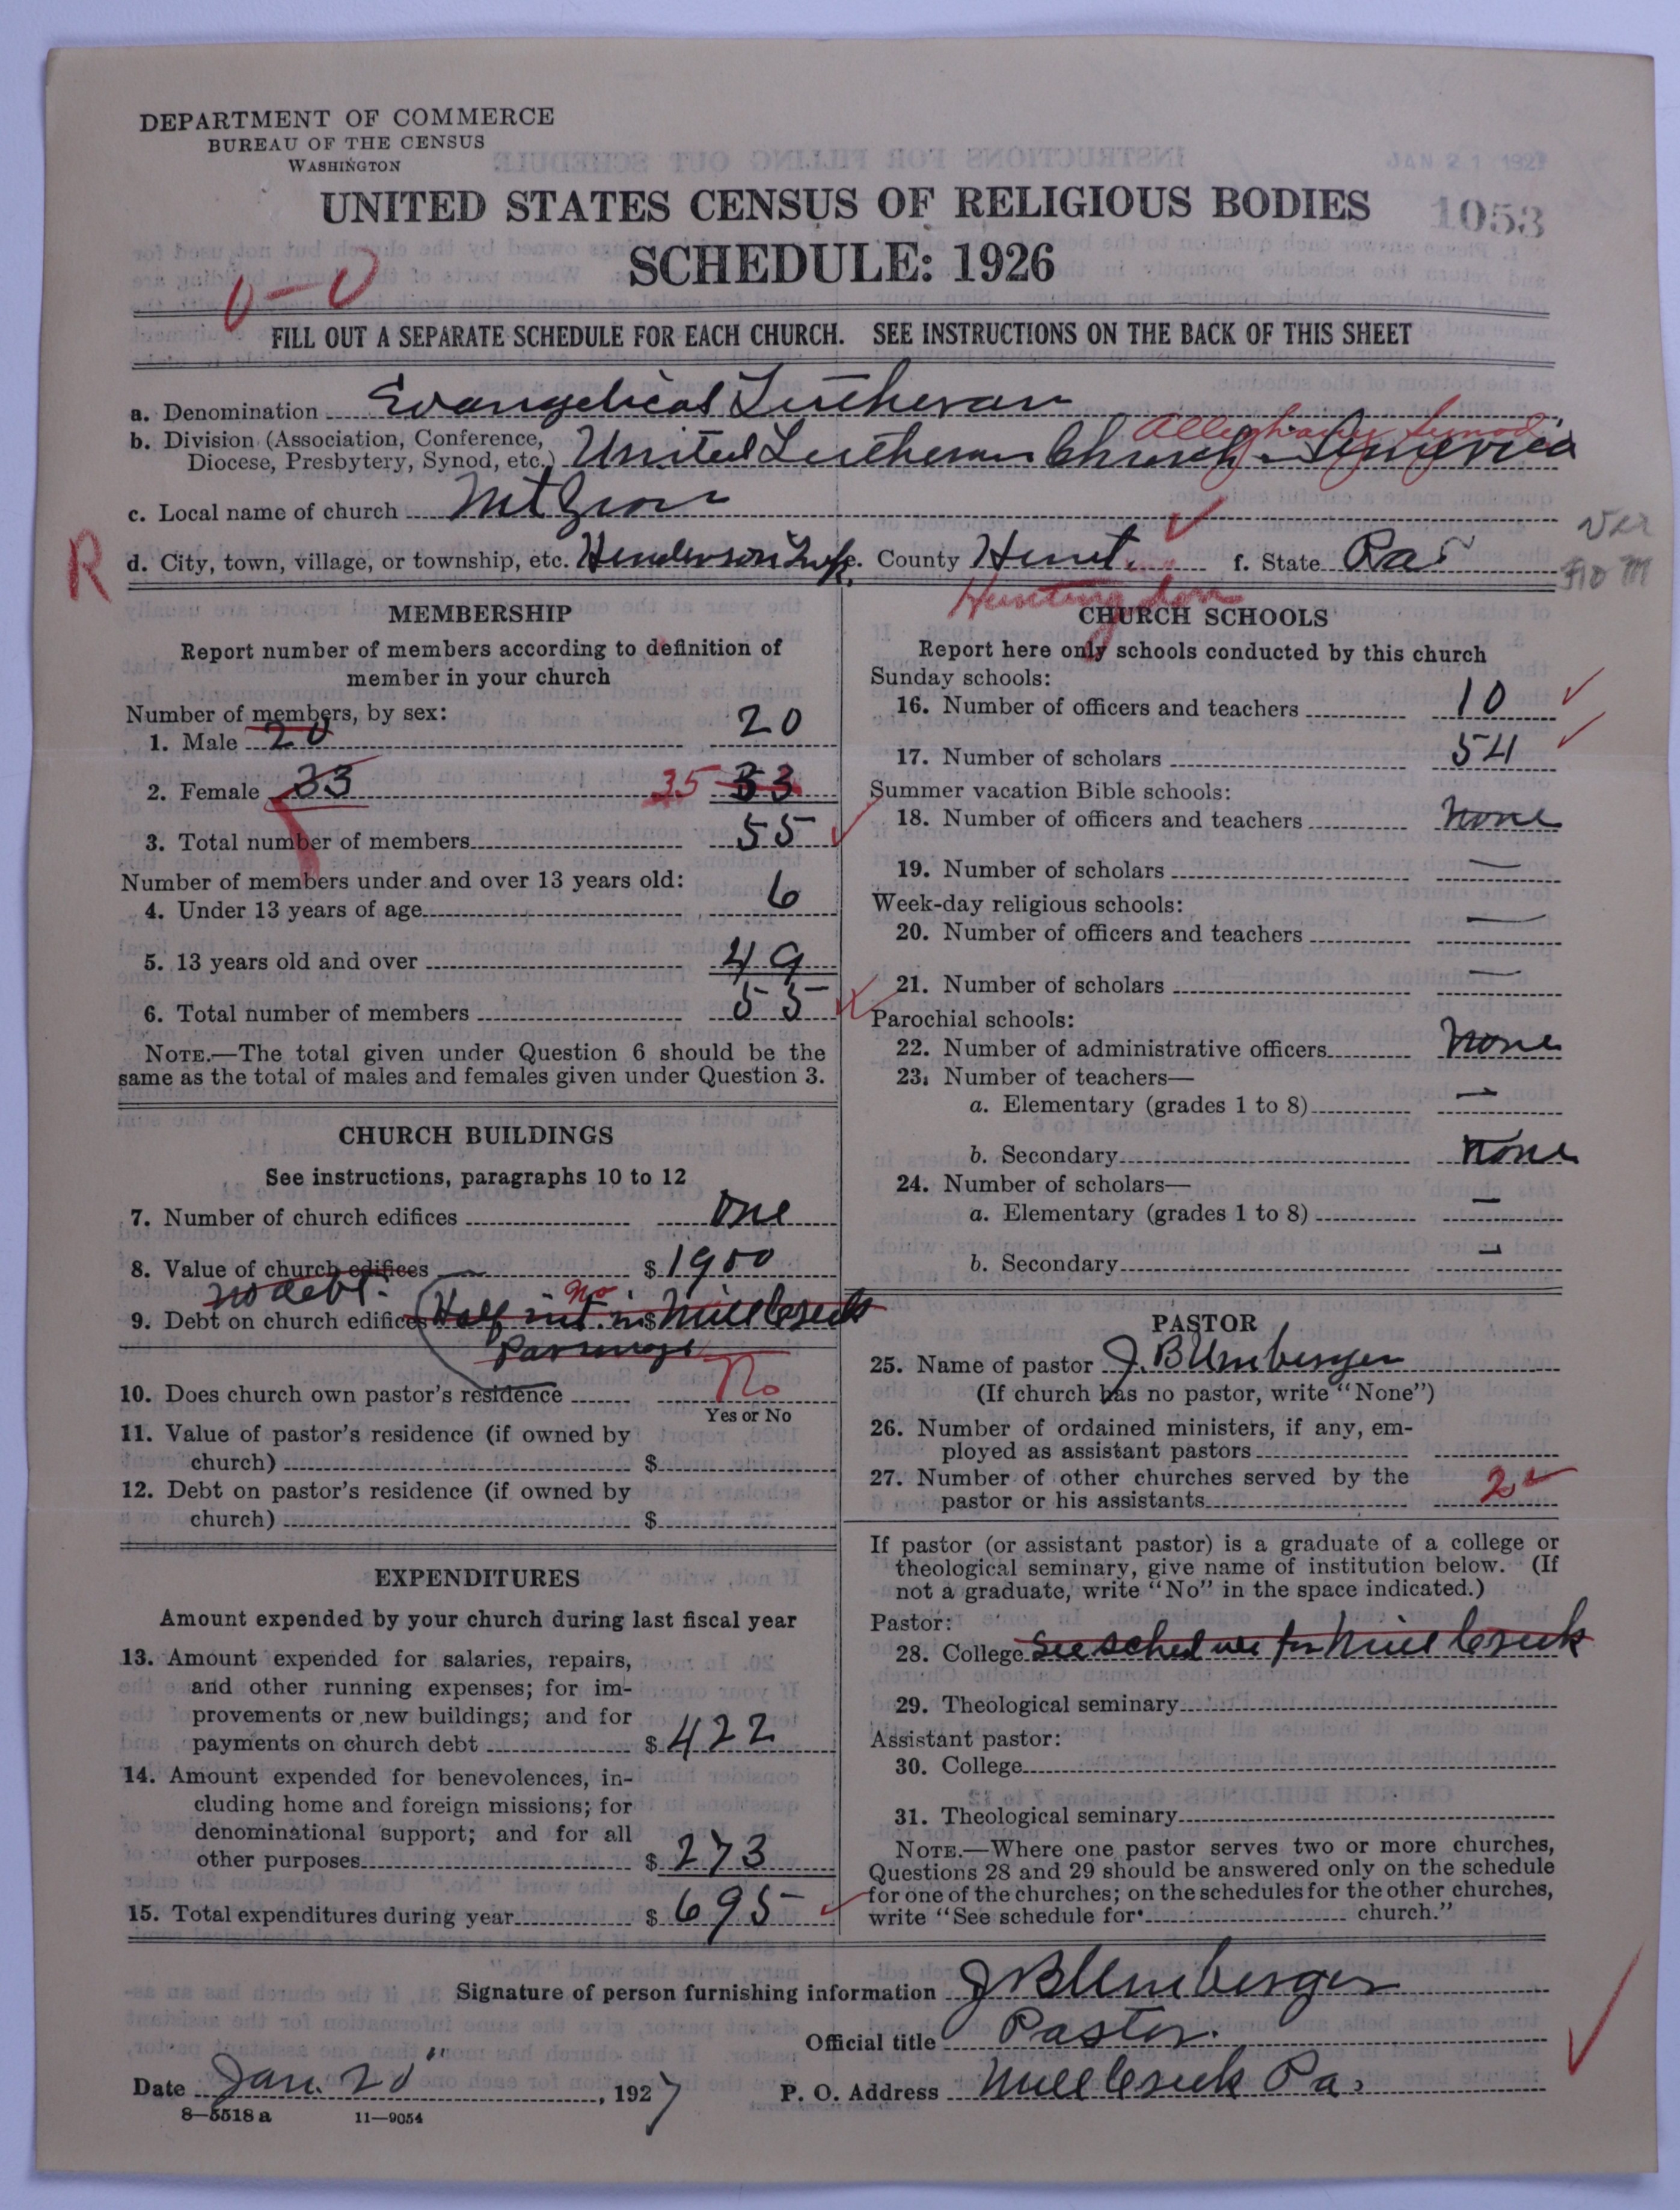 DEPARTMENT OF COMMERCE
BUREAU OF THE CENSUS
WASHINGTON
JAN 21 1927
UNITED STATES CENSUS OF RELIGIOUS BODIES
1053
SCHEDULE: 1926
FILL OUT A SEPARATE SCHEDULE FOR EACH CHURCH. SEE INSTRUCTIONS ON THE BACK OF THIS SHEET
a. Denomination Evangelical Lutheran
Alleghany Synod
b. Division (Association, Conference,
Diocese, Presbytery, Synod, etc.) United Lutheran Church America
c. Local name of church Mt Zion
R
d. City, town, village, or township, etc. Henderson Twp. County Hunt. f. State Pa
Huntingdon
MEMBERSHIP
Report number of members according to definition of
member in your church
Number of members, by sex:
1. Male 20 20
2. Female 33 35 33
3. Total number of members 55
Number of members under and over 13 years old:
4. Under 13 years of age 6
5. 13 years old and over 49
6. Total number of members 55
NOTE.—The total given under Question 6 should be the
same as the total of males and females given under Question 3.
CHURCH BUILDINGS
See instructions, paragraphs 10 to 12
7. Number of church edifices one
8. Value of church edifices $ 1900
no debt.
no
9. Debt on church edifices Half int. in $ Mill Creek
Parsonage
10. Does church own pastor's residence No
Yes or No
11. Value of pastor's residence (if owned by
church) $
12. Debt on pastor's residence (if owned by
church) $
EXPENDITURES
Amount expended by your church during last fiscal year
13. Amount expended for salaries, repairs,
and other running expenses; for im-
provements or new buildings; and for
payments on church debt $ 422
14. Amount expended for benevolences, in-
cluding home and foreign missions; for
denominational support; and for all
other purposes $ 273
15. Total expenditures during year $ 695
CHURCH SCHOOLS
Report here only schools conducted by this church
Sunday schools:
16. Number of officers and teachers 10
17. Number of scholars 54
Summer vacation Bible schools:
18. Number of officers and teachers None
19. Number of scholars —
Week-day religious schools:
20. Number of officers and teachers —
21. Number of scholars —
Parochial schools:
22. Number of administrative officers None
23. Number of teachers—
a. Elementary (grades 1 to 8) —
b. Secondary None
24. Number of scholars—
a. Elementary (grades 1 to 8) —
b. Secondary —
PASTOR
25. Name of pastor J. B Umberger
(If church has no pastor, write "None")
26. Number of ordained ministers, if any, em-
ployed as assistant pastors
27. Number of other churches served by the
pastor or his assistants 2
If pastor (or assistant pastor) is a graduate of a college or
theological seminary, give name of institution below. (If
not a graduate, write "No" in the space indicated.)
Pastor:
28. College See schedule for Mill Creek
29. Theological seminary
Assistant pastor:
30. College
31. Theological seminary
NOTE.—Where one pastor serves two or more churches,
Questions 28 and 29 should be answered only on the schedule
for one of the churches; on the schedules for the other churches,
write "See schedule for church."
Signature of person furnishing information J B Umberger
Official title Pastor.
Date Jan. 20, 1927 P. O. Address Mill Creek Pa.
8—5518 a 11—9054